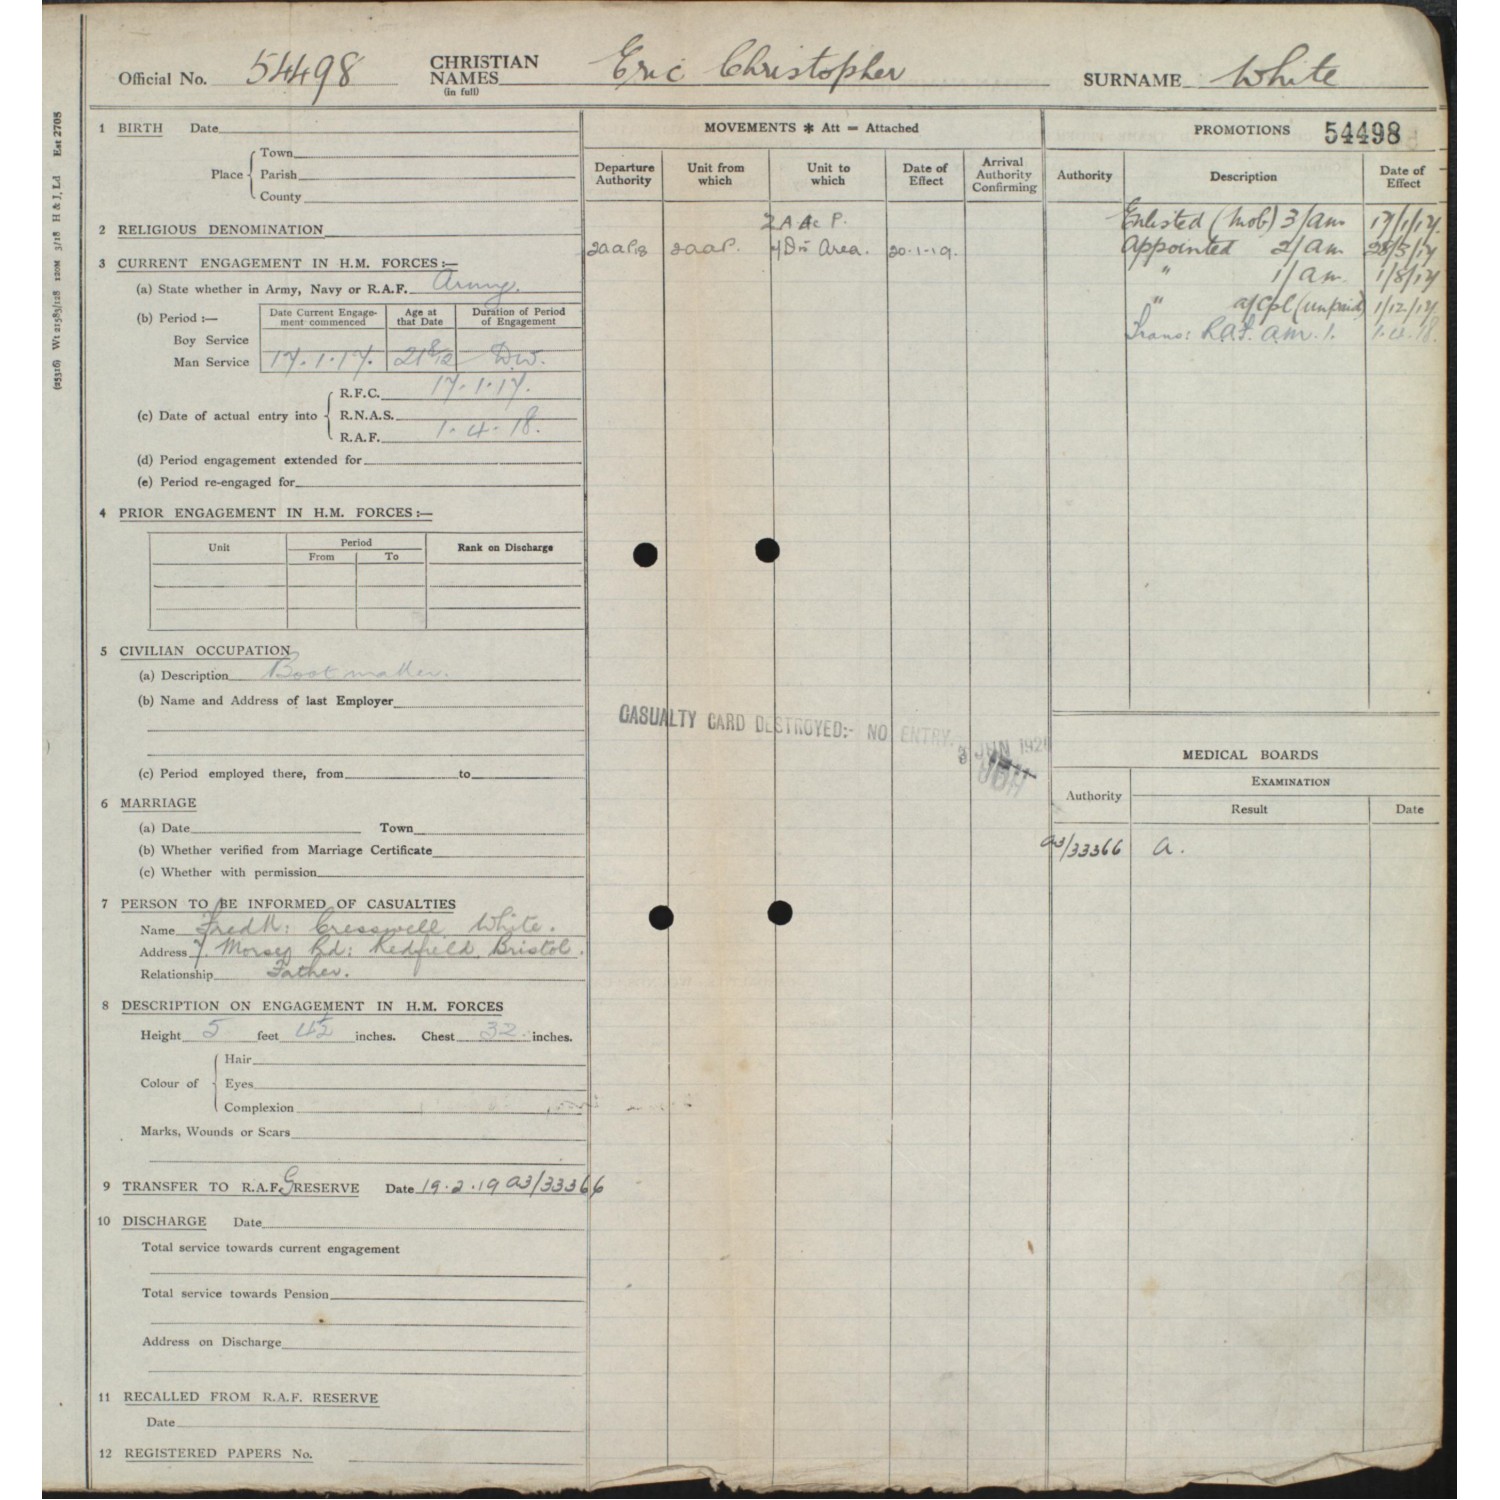 Official No. 54498 CHRISTIAN NAMES (in full) Eric Christopher SURNAME White
(25316) Wt 21583/128 120M 3/18 H & J, Ld Est 2705
1 BIRTH Date
Place Town
Parish
County
2 RELIGIOUS DENOMINATION
3 CURRENT ENGAGEMENT IN H.M. FORCES:—
(a) State whether in Army, Navy or R.A.F. Army.
(b) Period:—
Date Current Engage-ment commenced Age at that Date Duration of Period of Engagement
Boy Service
Man Service 17.1.17. 21 8/12 D.W.
(c) Date of actual entry into R.F.C. 17.1.17.
R.N.A.S.
R.A.F. 1.4.18.
(d) Period engagement extended for
(e) Period re-engaged for
4 PRIOR ENGAGEMENT IN H.M. FORCES:—
Unit Period Rank on Discharge
From To
5 CIVILIAN OCCUPATION
(a) Description Boot maker.
(b) Name and Address of last Employer
(c) Period employed there, from to
6 MARRIAGE
(a) Date Town
(b) Whether verified from Marriage Certificate
(c) Whether with permission
7 PERSON TO BE INFORMED OF CASUALTIES
Name Fredk: Cresswell White.
Address 7. Morsey Rd: Redfield, Bristol.
Relationship Father.
8 DESCRIPTION ON ENGAGEMENT IN H.M. FORCES
Height 5 feet 4½ inches. Chest 32 inches.
Colour of Hair
Eyes
Complexion
Marks, Wounds or Scars
9 TRANSFER TO R.A.F. G RESERVE Date 19.2.19 A3/33366
10 DISCHARGE Date
Total service towards current engagement
Total service towards Pension
Address on Discharge
11 RECALLED FROM R.A.F. RESERVE
Date
12 REGISTERED PAPERS No.
MOVEMENTS * Att = Attached
Departure Authority Unit from which Unit to which Date of Effect Arrival Authority Confirming
2 A Ac P.
2aaP18 2aaP. Area. 20.1.19.
CASUALTY CARD DESTROYED:- NO ENTRY.
3 JUN 192
PROMOTIONS 54498
Authority Description Date of Effect
Enlisted (Mob) 3/am 17/1/17.
Appointed 2/am 28/3/17
" 1/am 1/8/17
" a/Cpl (unpaid) 1/12/17
Trans: R.A.F. am. 1. 1.4.18.
MEDICAL BOARDS
Authority EXAMINATION
Result Date
A3/33366 A.